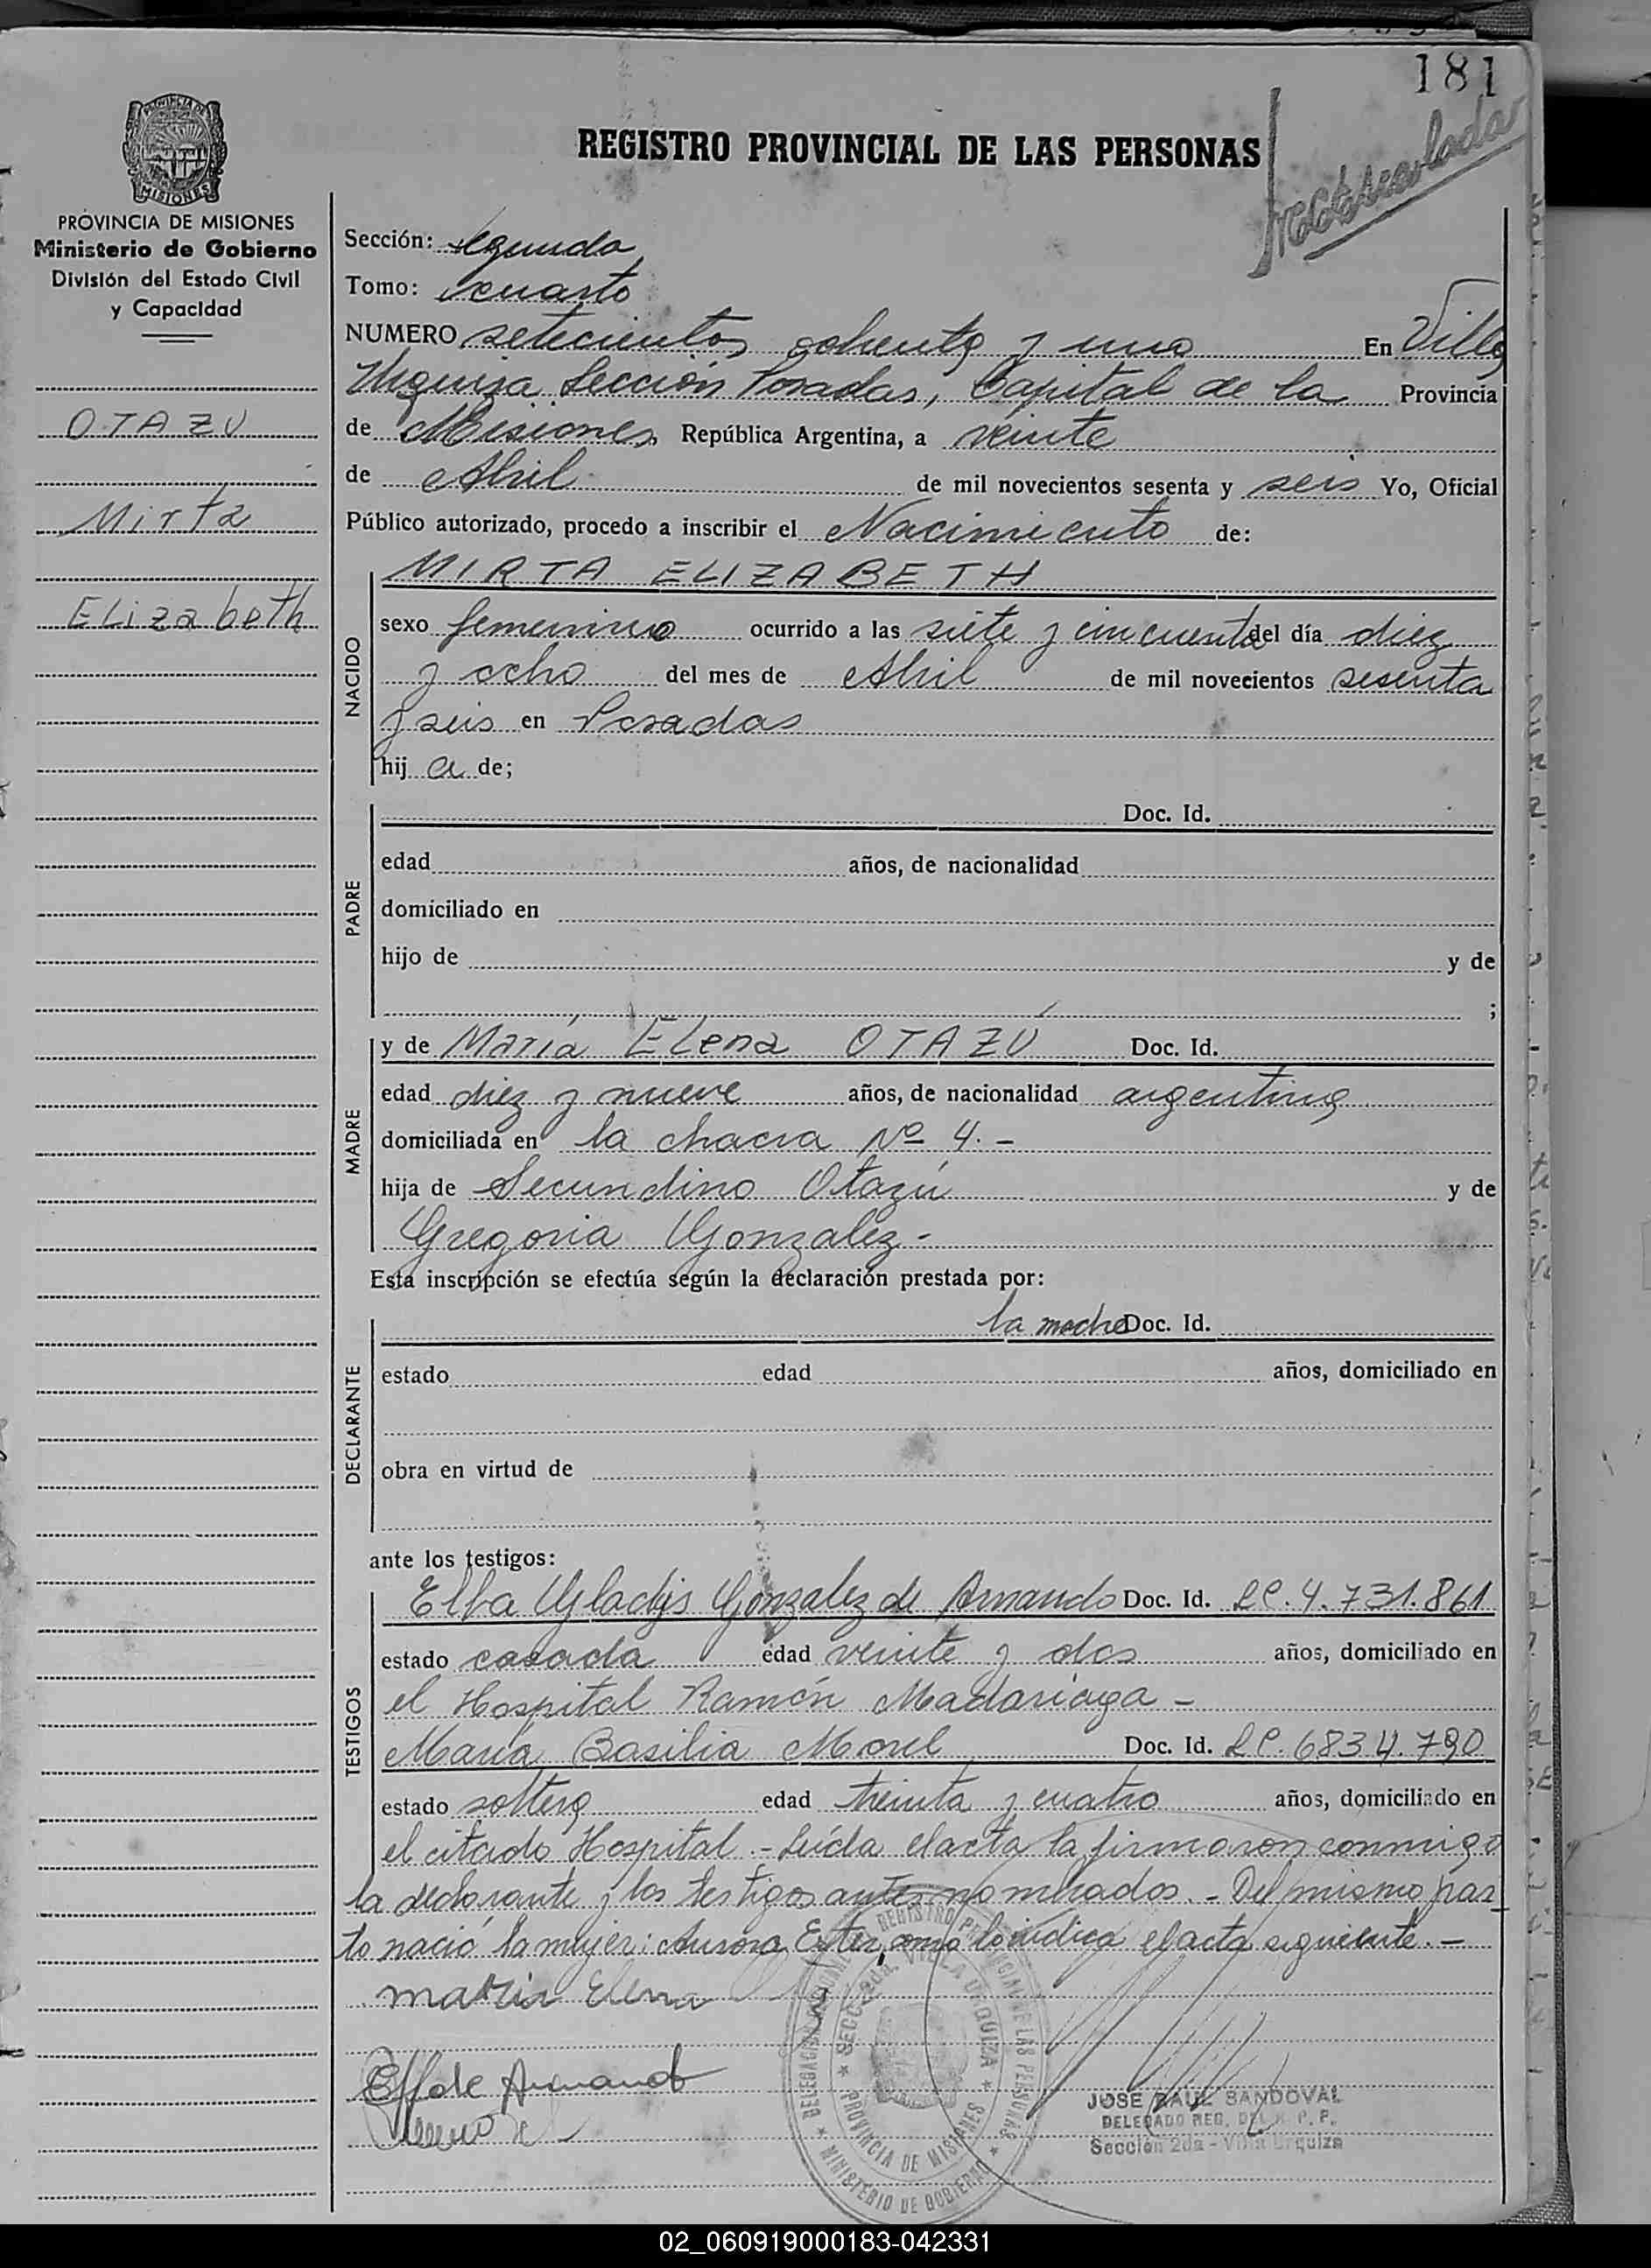 181
matriculada
REGISTRO PROVINCIAL DE LAS PERSONAS
PROVINCIA DE MISIONES
Ministerio de Gobierno
División del Estado Civil
y Capacidad
OTAZU
Mirta
Elizabeth
Sección: segunda
Tomo: cuarto
NUMERO setecientos ochenta y uno En Villa
Urquiza Sección Posadas, Capital de la Provincia
de Misiones República Argentina, a veinte
de Abril de mil novecientos sesenta y seis Yo, Oficial
Público autorizado, procedo a inscribir el Nacimiento de:
NACIDO
MIRTA ELIZABETH
sexo femenino ocurrido a las siete y cincuenta del día diez
y ocho del mes de Abril de mil novecientos sesenta
y seis en Posadas
hij a de;
PADRE
Doc. Id.
edad años, de nacionalidad
domiciliado en
hijo de y de
;
MADRE
y de María Elena OTAZÚ Doc. Id.
edad diez y nueve años, de nacionalidad argentina
domiciliada en la chacra Nº 4.-
hija de Secundino Otazú y de
Gregoria Gonzalez-
Esta inscripción se efectúa según la declaración prestada por:
DECLARANTE
la madre Doc. Id.
estado edad años, domiciliado en
obra en virtud de
ante los testigos:
TESTIGOS
Elba Gladys Gonzalez de Armando Doc. Id. LC. 4.731.861
estado casada edad veinte y dos años, domiciliado en
el Hospital Ramón Madariaga -
María Basilia Morel Doc. Id. LC. 6834.790
estado soltera edad treinta y cuatro años, domiciliado en
el citado Hospital.- Leída el acta la firmaron conmigo
la declarante y los testigos antes nombrados.- Del mismo par-
to nació la mujer: Aurora Ester, como lo indica el acta siguiente.-
maria Elena
E G de Armando
REGISTRO PROVINCIAL DE LAS PERSONAS
SECC. 2DA. VILLA URQUIZA
PROVINCIA DE MISIONES
MINISTERIO DE GOBIERNO
JOSE RAUL SANDOVAL
DELEGADO REG. DEL R. P. P.
Sección 2da - Villa Urquiza
02_060919000183-042331